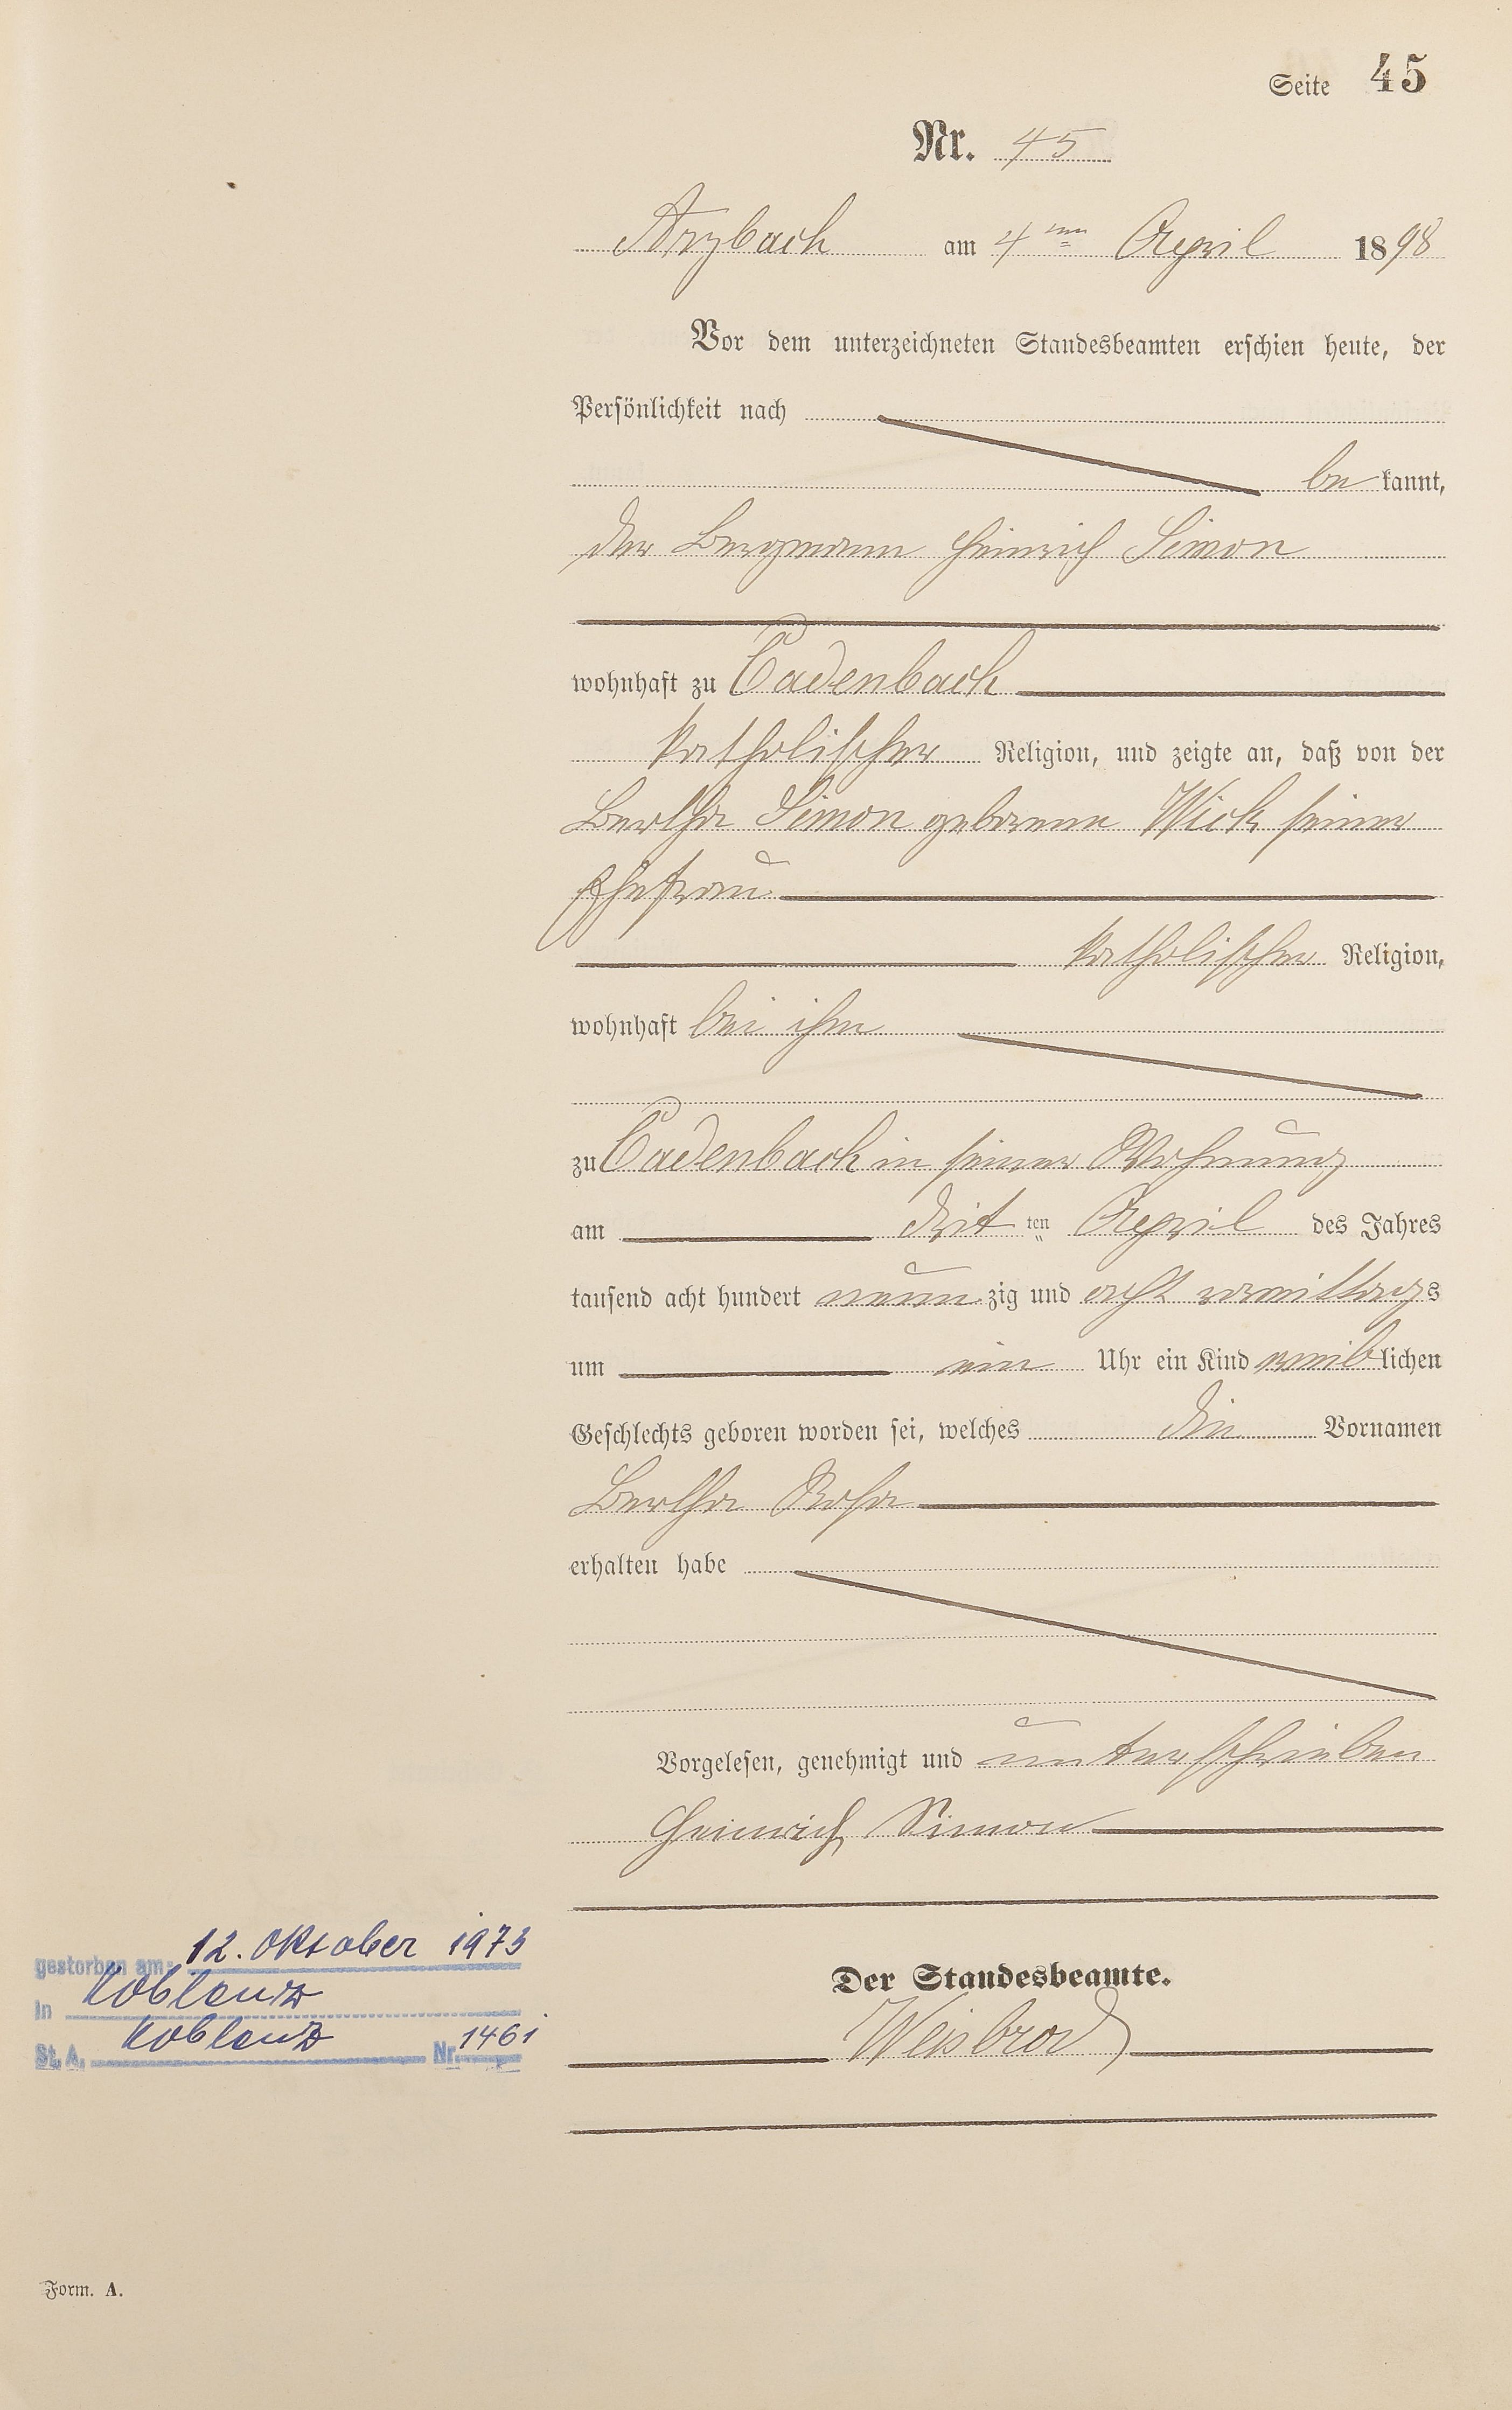 Seite 45
Nr. 45
Arzbach am 4ten April 1898
Vor dem unterzeichneten Standesbeamten erschien heute, der
Persönlichkeit nach
be kannt,
der Bergmann Heinrich Simon
wohnhaft zu Cadenbach
katholischer Religion, und zeigte an, daß von der
Bertha Simon geborene Wick seiner
Ehefrau
katholischer Religion,
wohnhaft bei ihm
zu Cadenbach in seiner Wohnung
am drit ten April des Jahres
tausend acht hundert neun zig und acht vormittags
um ein Uhr ein Kind weiblichen
Geschlechts geboren worden sei, welches die Vornamen
Bertha Rosa
erhalten habe
Vorgelesen, genehmigt und unterschrieben
Heinrich Simon
Der Standesbeamte.
Weisbrod
gestorben am: 12. Oktober 1973
in Koblenz
St. A. Koblenz Nr. 1461
Form. A.